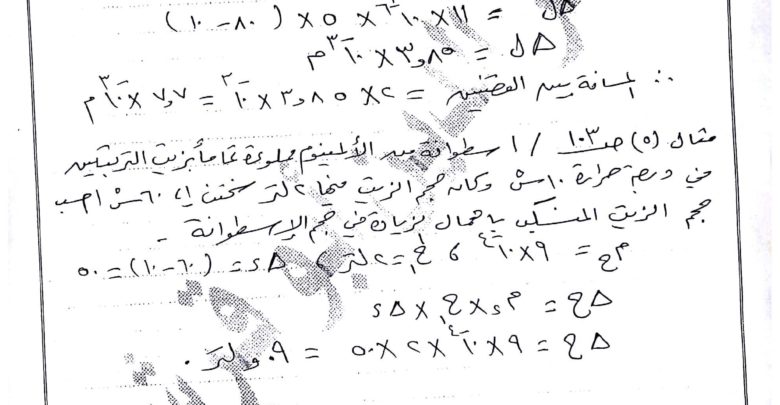 Δل = ١١ × ١٠⁻٦ × ٥ × (٨٠ − ١٠)
Δل = ٣,٨٥ × ١٠⁻٣ م
∴ المسافة بين القضيبين = ٢ × ٣,٨٥ × ١٠⁻٢ = ٧,٧ × ١٠⁻٣ م
مثال (٥) صـ ١٠٣ / اسطوانة من الألمنيوم مملوءة تماماً بزيت التربنتين
في درجة حرارة ١٠ س وكان حجم الزيت فيها ٢ لتر سخنت إلى ٦٠ س احسب
حجم الزيت المنسكب بإهمال الزيادة في حجم الإسطوانة .
مح = ٩ × ١٠⁻٤ ، ح١ = ٢ لتر ، Δء = (٦٠ − ١٠) = ٥٠
Δح = مء × ح١ × Δء
Δح = ٩ × ١٠⁻٤ × ٢ × ٥٠ = ٠,٠٩ لتر .